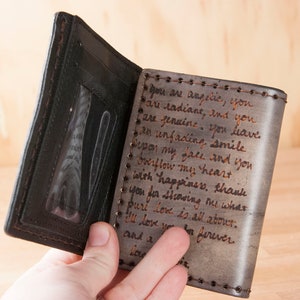 You are angelic, you
are radiant, and you
are genuine. You leave
an unfading smile
upon my face and you
overflow my heart
with happiness. Thank
you for showing me what
pure love is all about.
I love you forever
and a